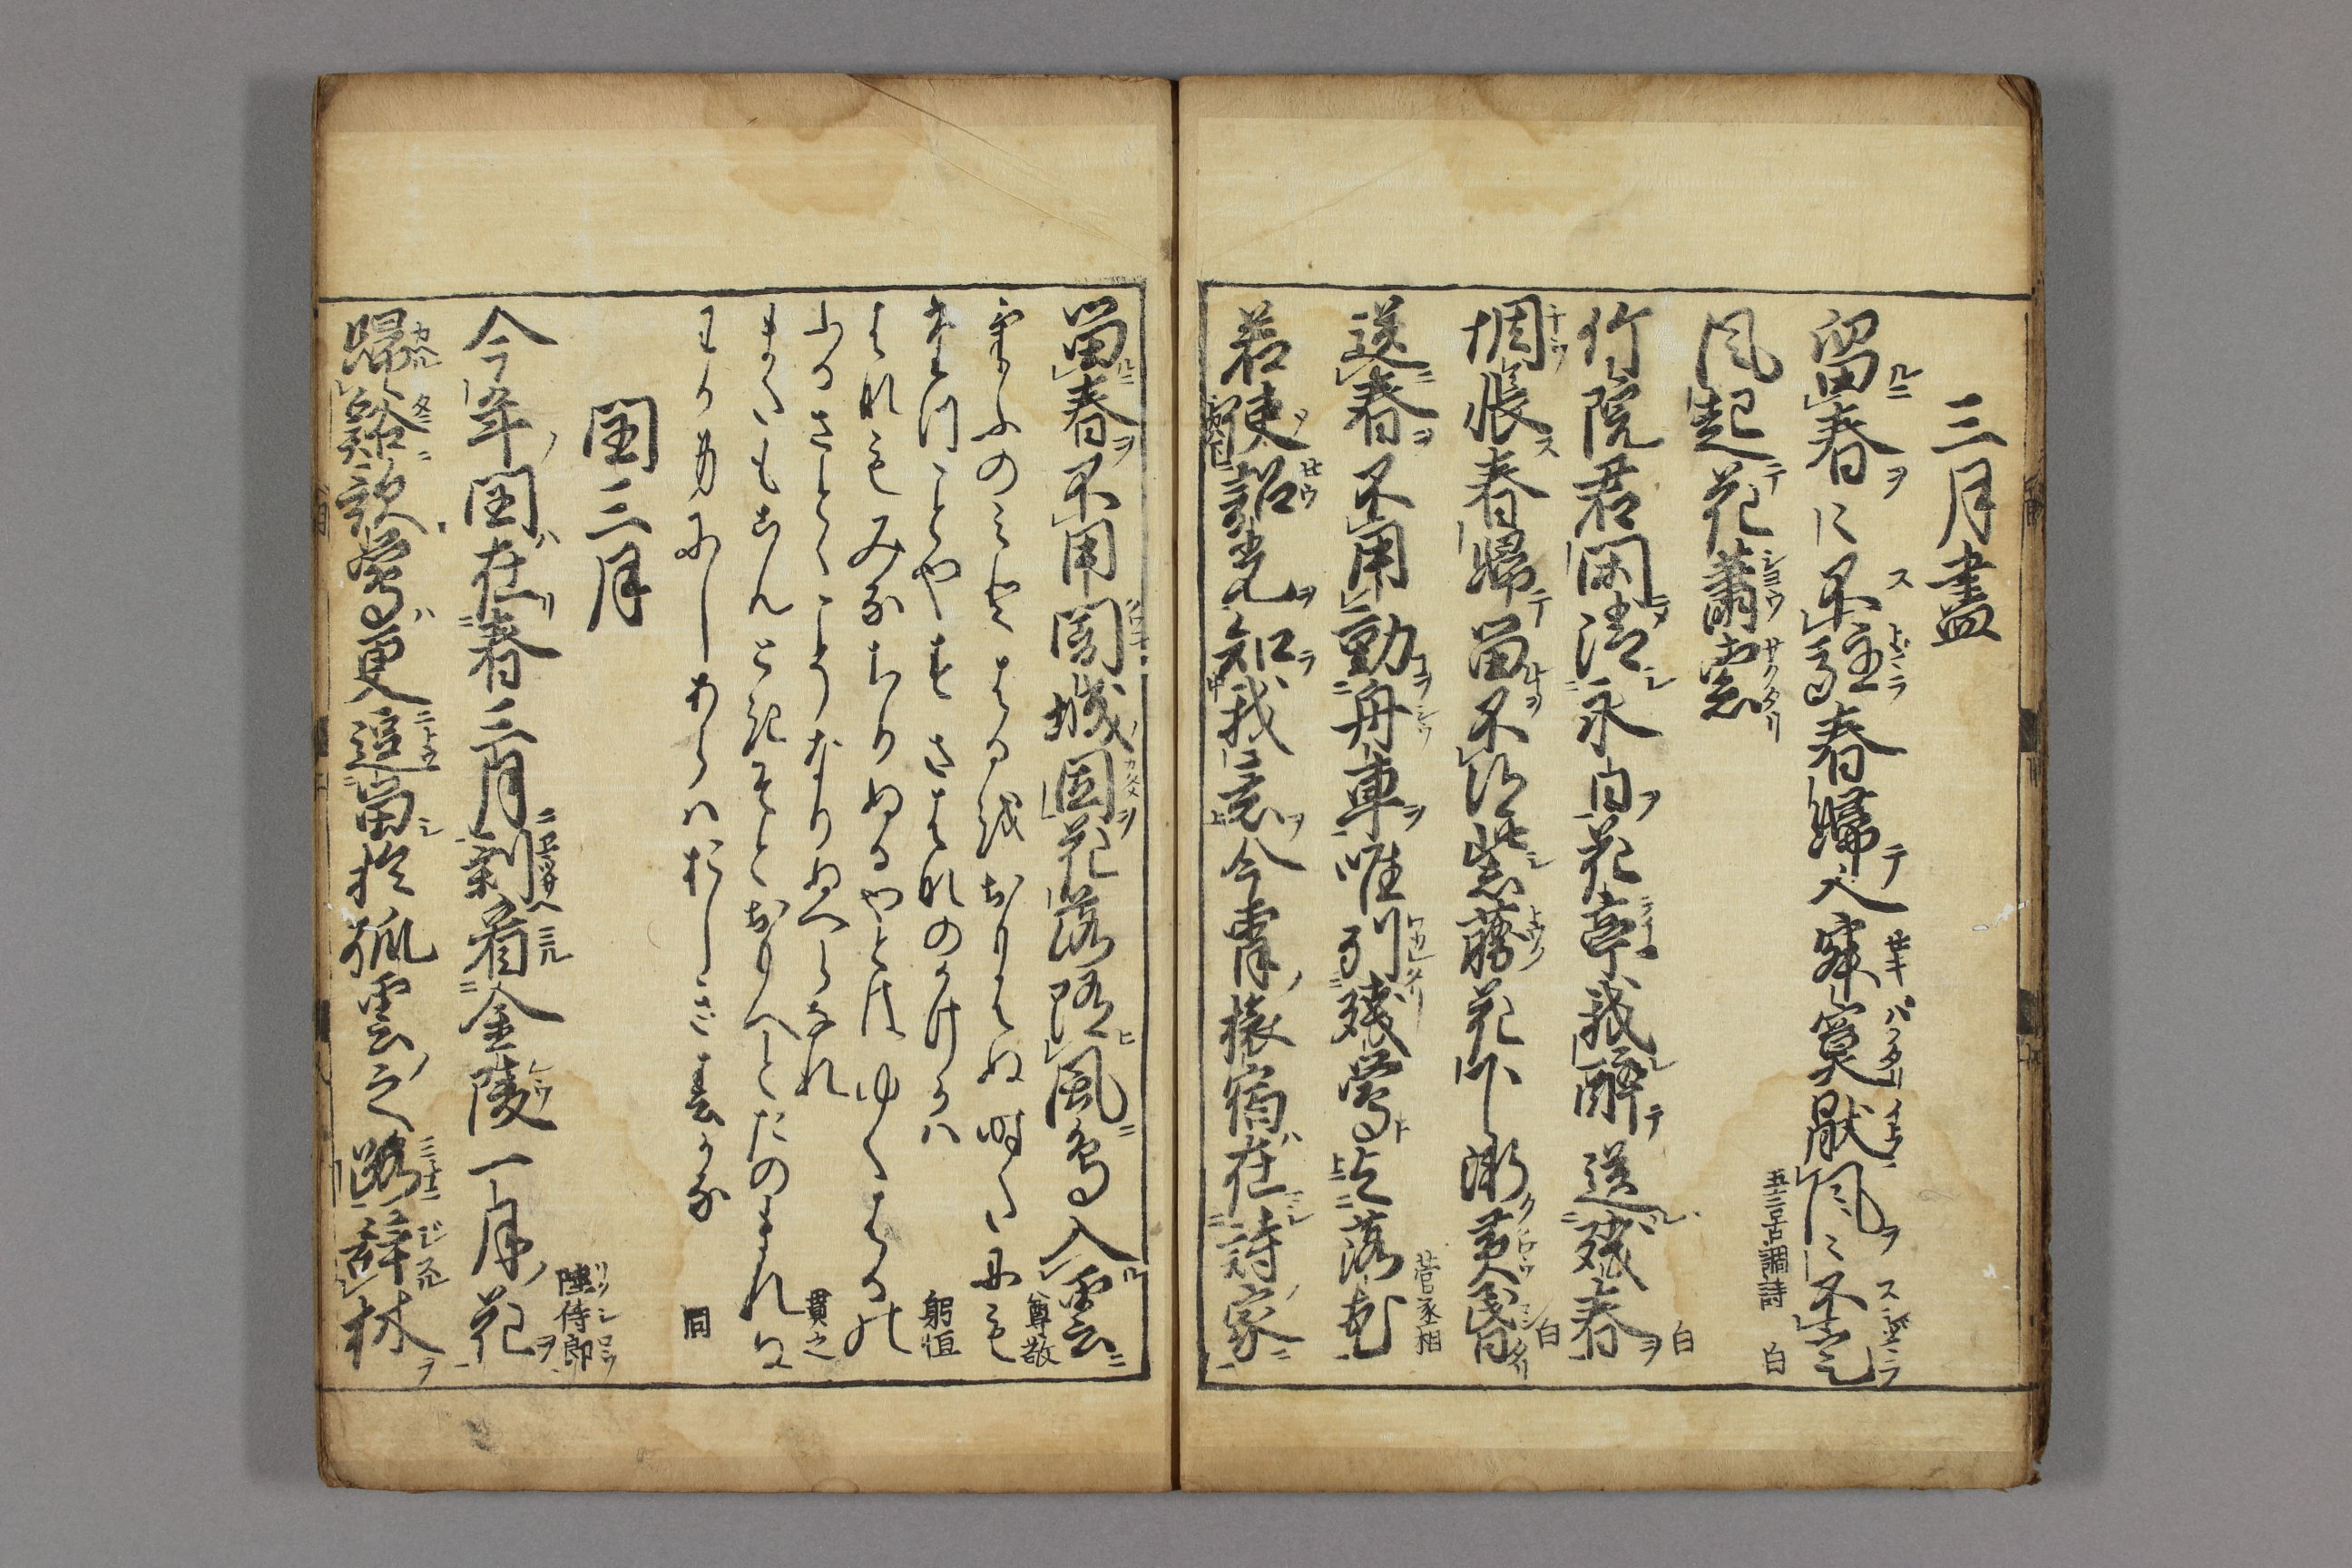 三月盡
留春〻不駐春歸人寂寞厭風〻不定
風起花蕭索 五言古調詩 白
竹院君閑消永日花亭我醉送殘春 白
惆悵春歸留不得紫藤花下漸黄昏 白
送春不用動舟車唯別殘鶯与落花 菅丞相
若使韶光知我意今宵旅宿在詩家
留春不用関城固花落随風鳥入雲 尊敬
けふのみとはるをおもはぬ時たにも
たつことやすきはなのかけかは 躬恒
はなもみなちりぬるやとはゆくはるの
ふるさとゝこそなりぬへらなれ 貫之
またもこんときそとおもへとたのまれぬ
わか身にしあれはおしきはるかな 同
閏三月
今年閏在春三月剰看金陵一月花 陸侍郎
歸谿歌鶯更逗留於孤雲之路辞林